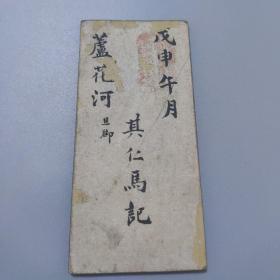 戊申午月
其仁馬記
蘆花河旦脚